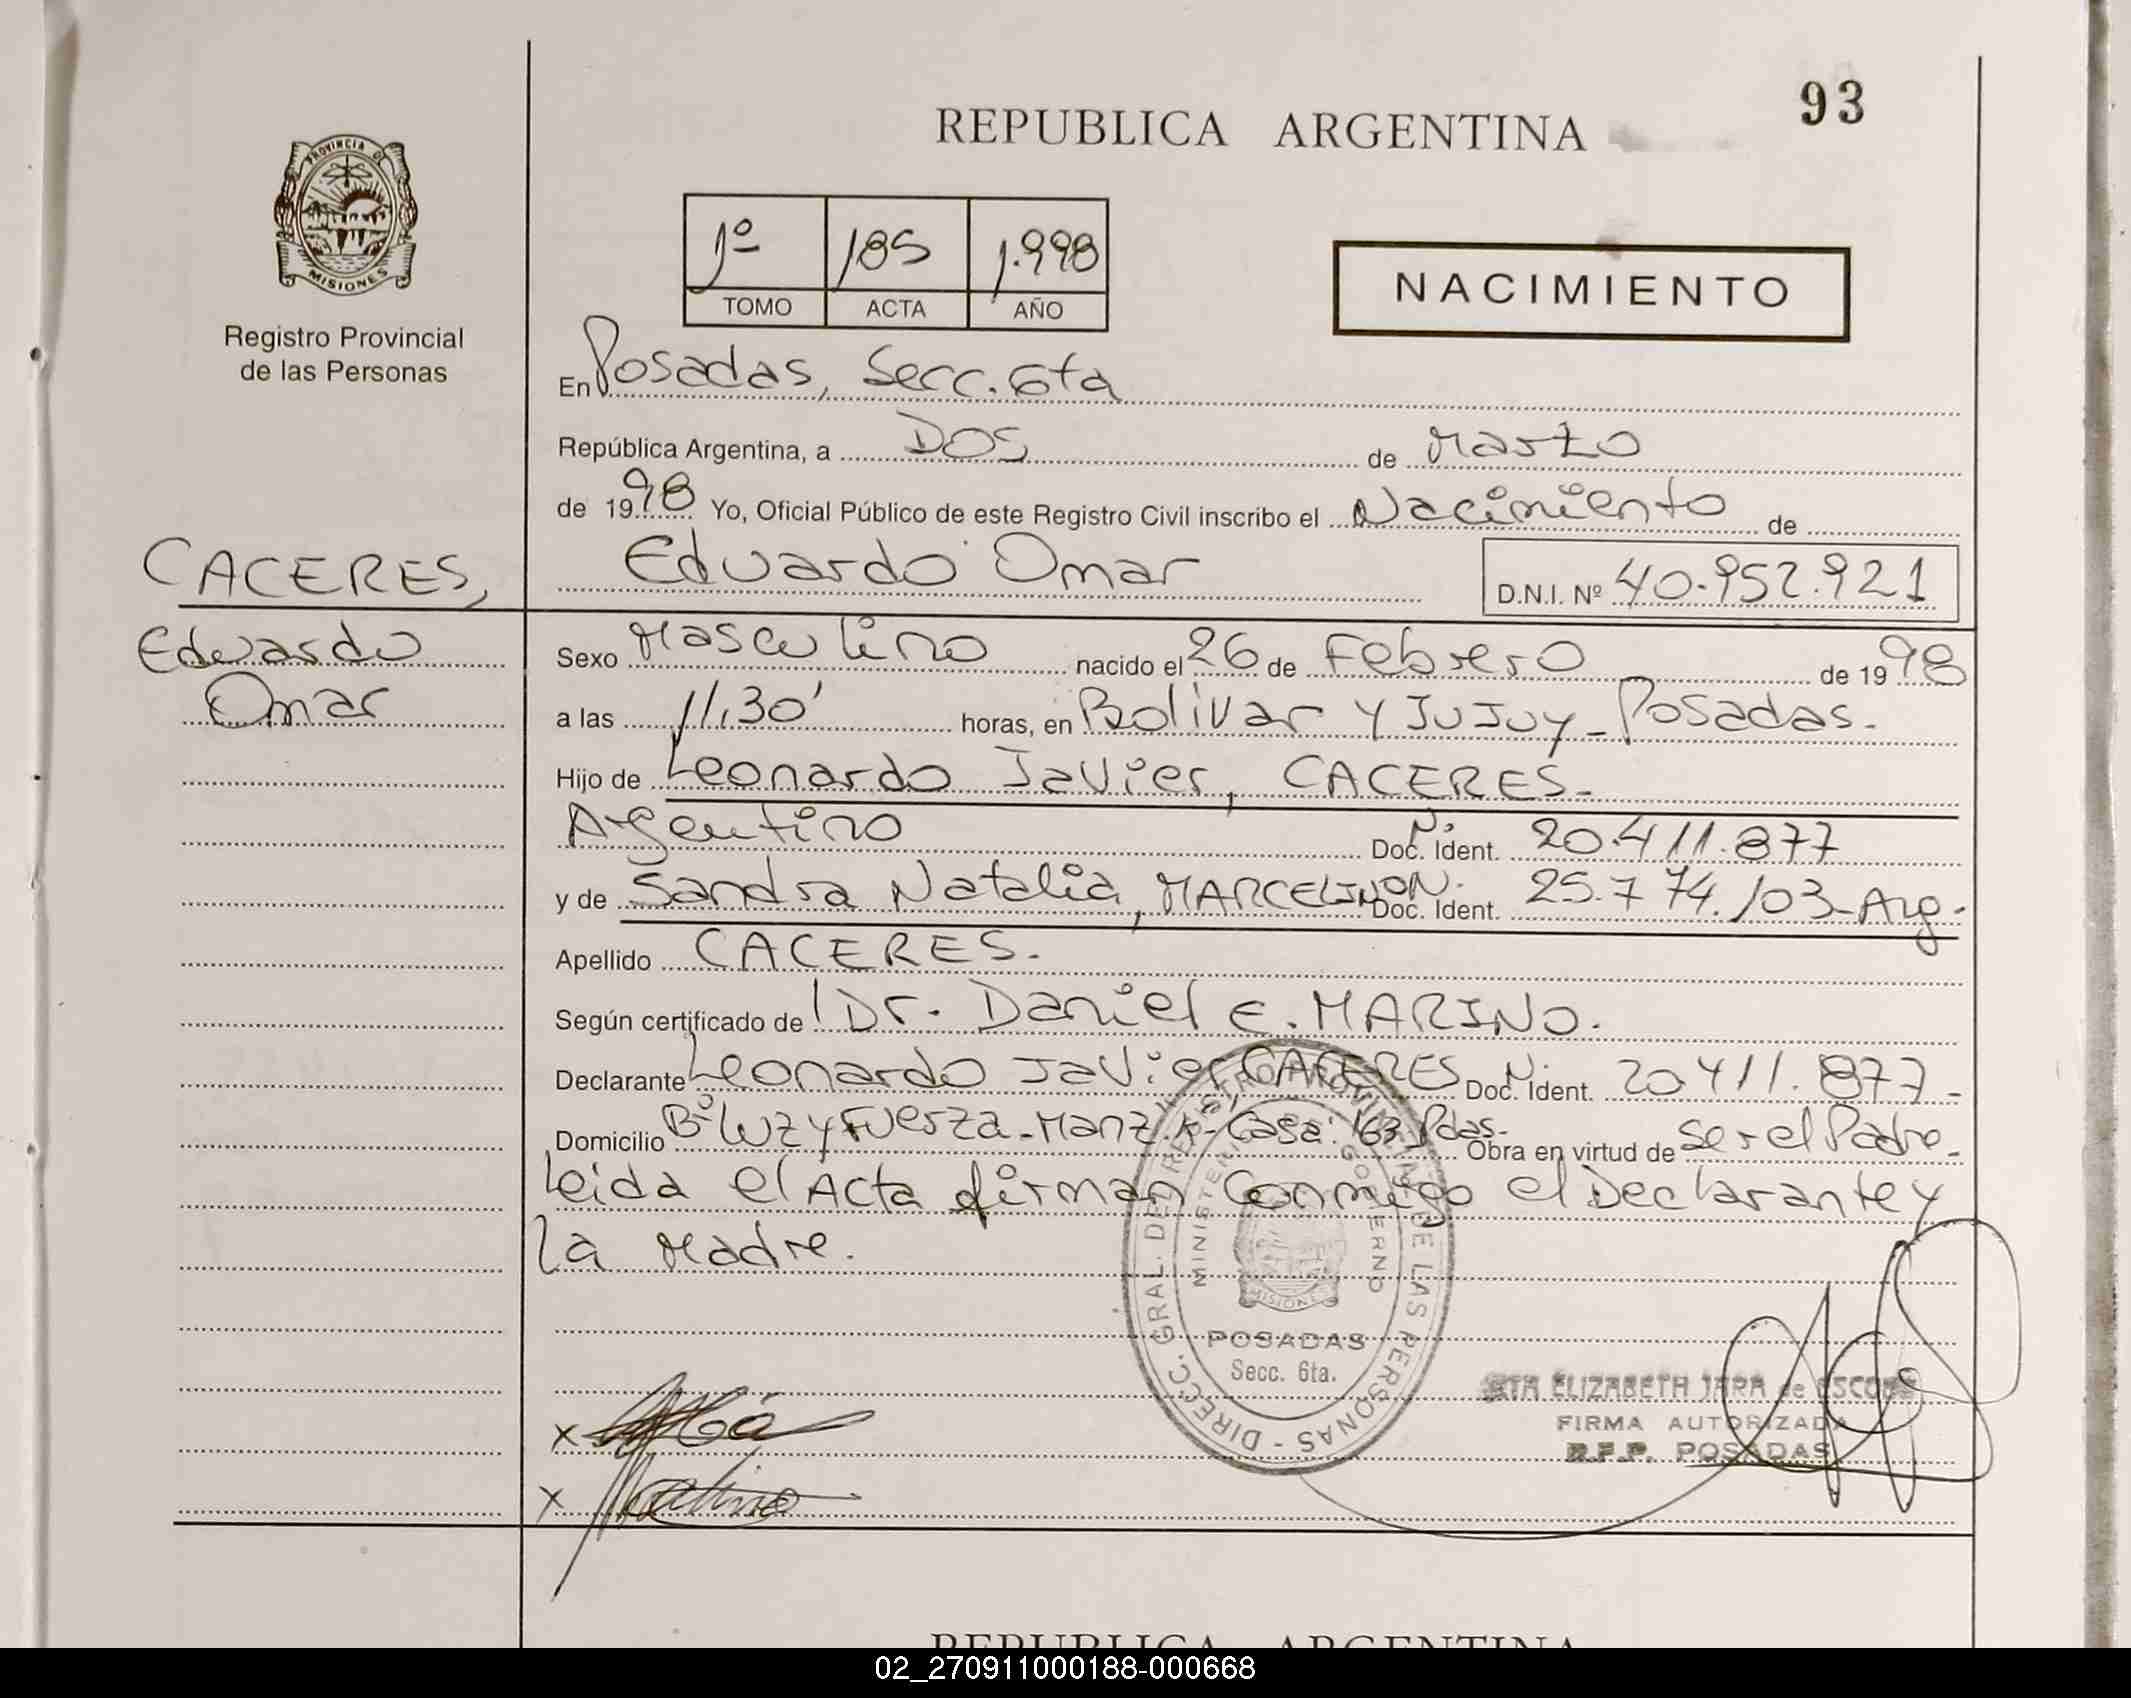 93
REPUBLICA ARGENTINA
PROVINCIA D
MISIONES
Registro Provincial
de las Personas
1º 185 1.998
TOMO ACTA AÑO
NACIMIENTO
En Posadas, Secc. 6ta
República Argentina, a Dos de Marzo
de 1998 Yo, Oficial Público de este Registro Civil inscribo el Nacimiento de
CACERES, Eduardo Omar D.N.I. Nº 40.952.921
Eduardo
Omar
Sexo Masculino nacido el 26 de Febrero de 1998
a las 11,30' horas, en Bolivar y Jujuy - Posadas.
Hijo de Leonardo Javier, CACERES-
Argentino Doc. Ident. 20.411.877
y de Sandra Natalia, MARCELINO Doc. Ident. 25.774.103-Arg.
Apellido CACERES.
Según certificado de Dr. Daniel E. MARINO.
Declarante Leonardo Javier CACERES Doc. Ident. 20.411.877-
Domicilio Bº Luz y Fuerza - Manz. K - Casa: 163 Pdas. Obra en virtud de Ser el Padre.
Leida el Acta firman Conmigo el Declarante y
la Madre.
DIRECC. GRAL. DEL REGISTRO PROVINCIAL DE LAS PERSONAS -
MINISTERIO GOBIERNO
MISIONES
POSADAS
Secc. 6ta.
ELIZABETH JARA de
FIRMA AUTORIZADA
R.P.P. POSADAS
X
X
REPUBLICA ARGENTINA
02_270911000188-000668